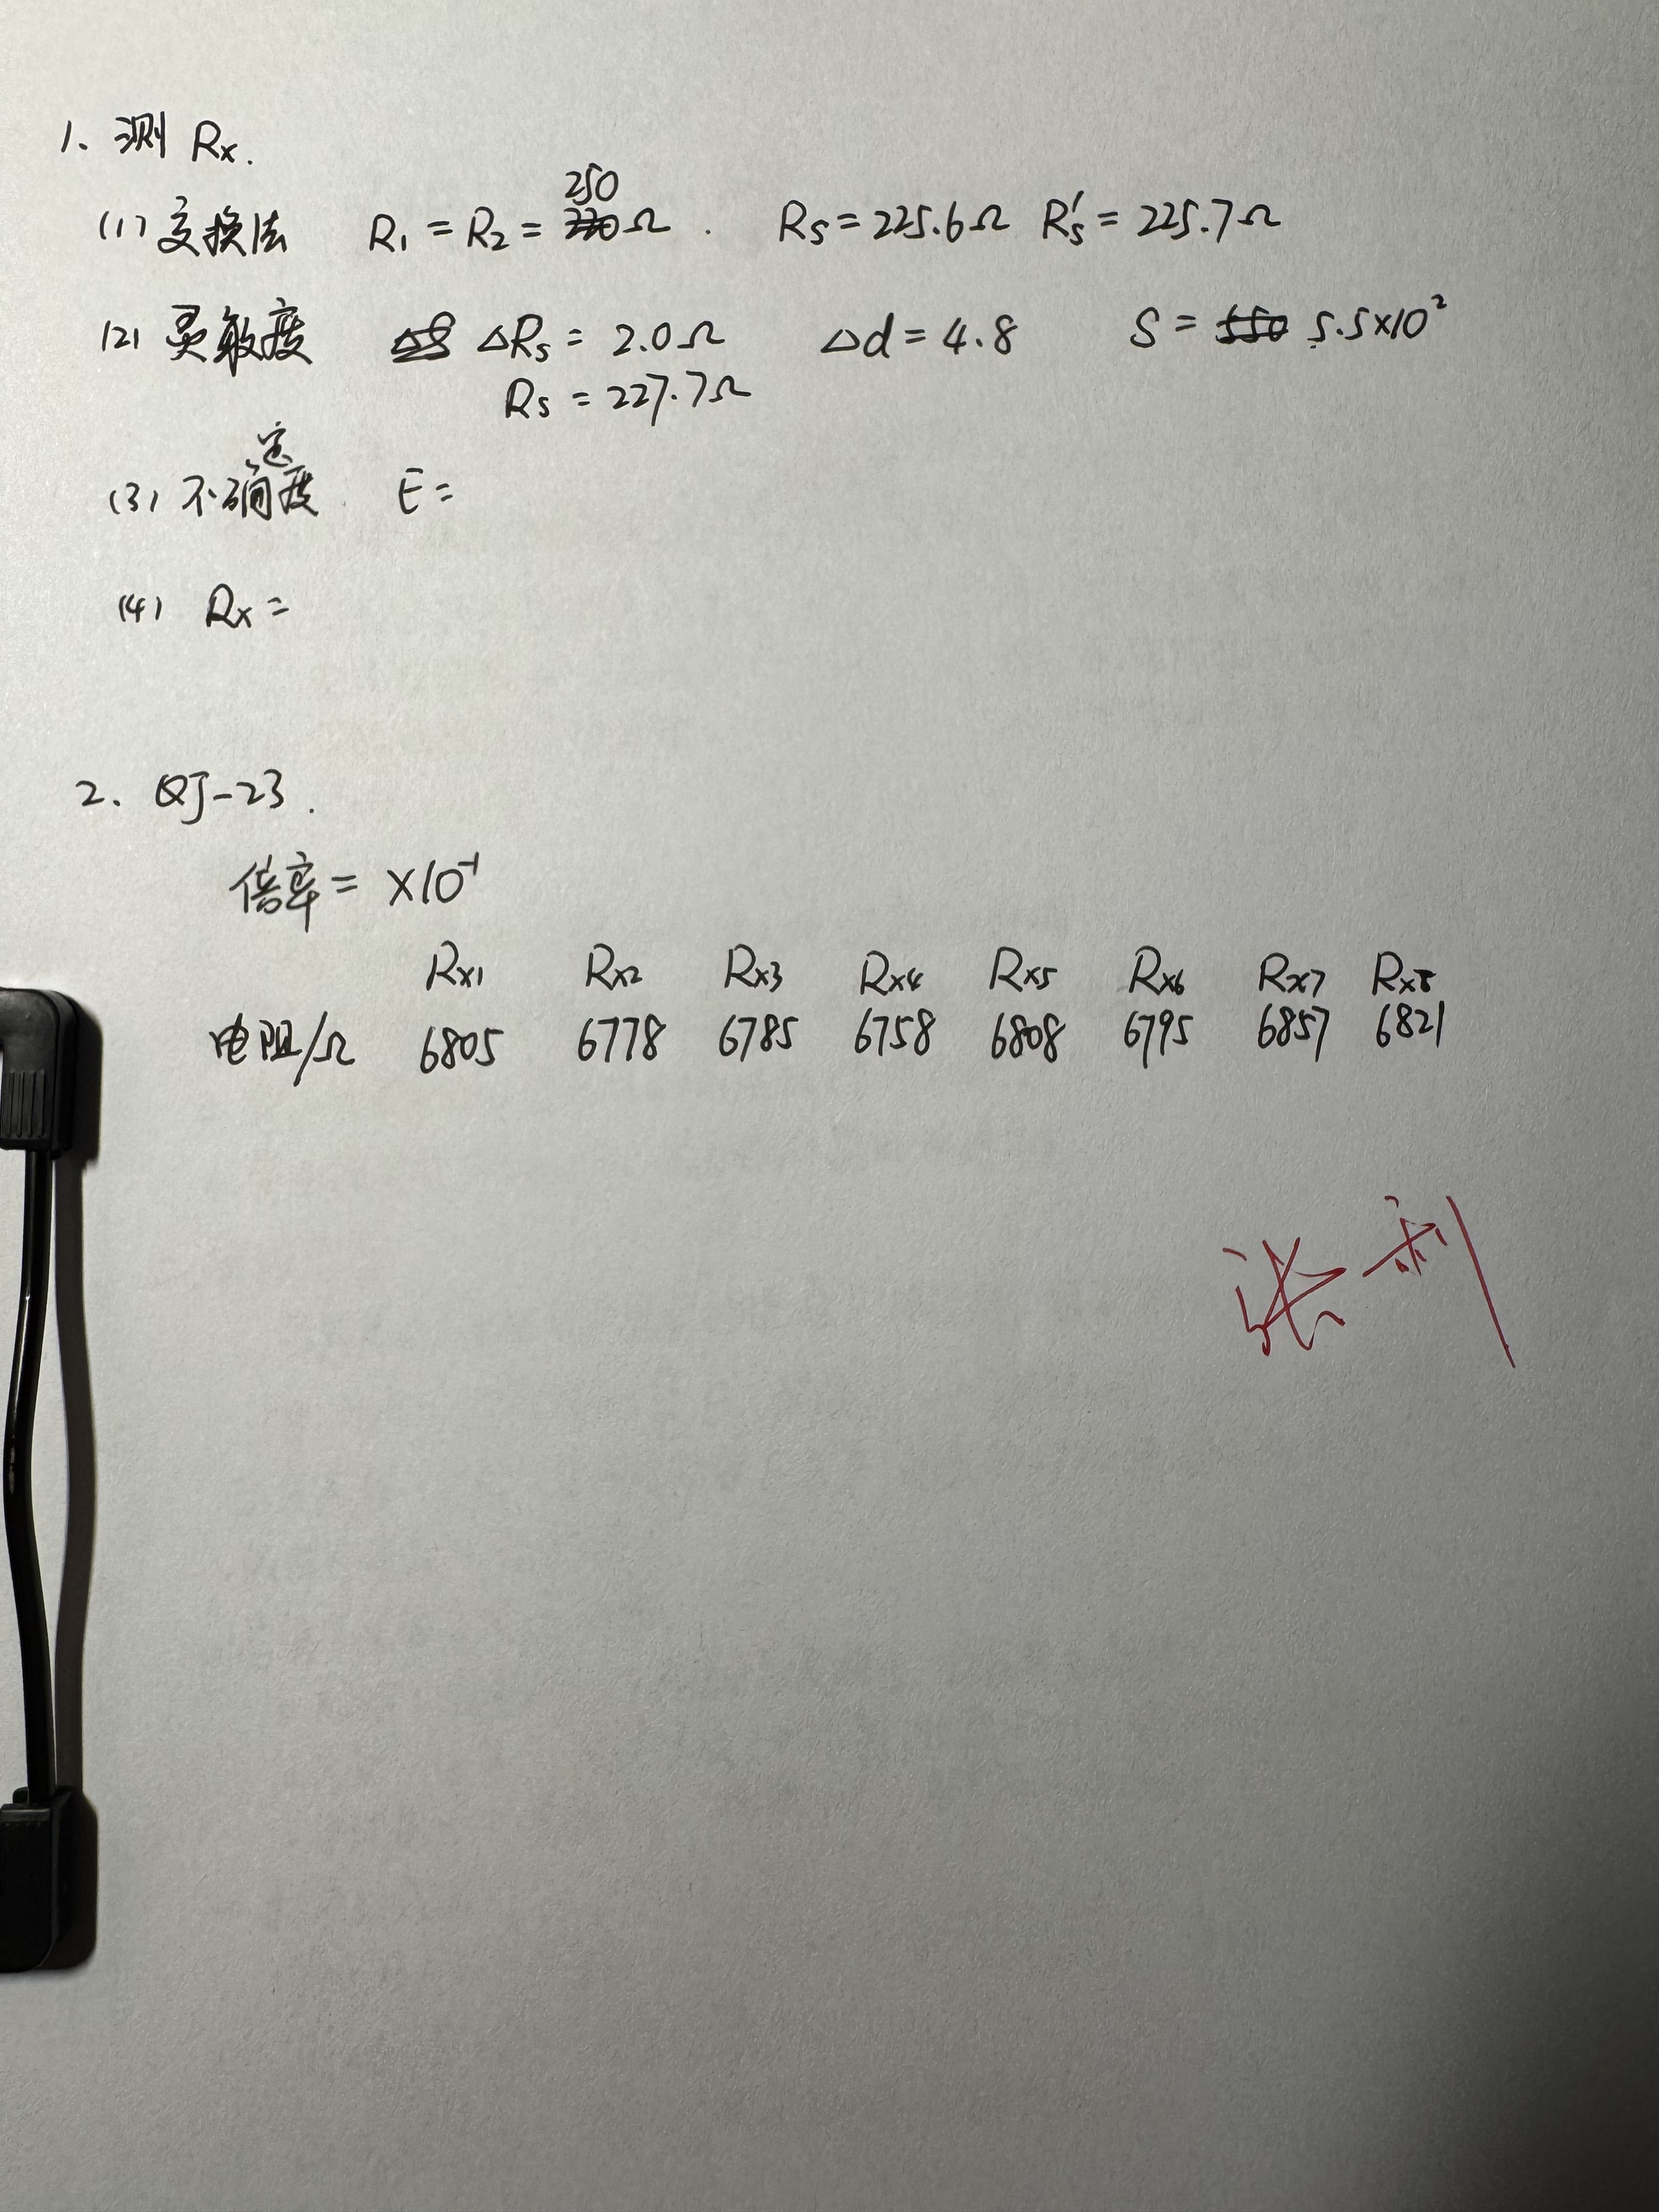 1、测 Rx.
(1) 交换法 R₁ = R₂ = 250Ω. Rs = 225.6Ω Rs' = 225.7Ω
(2) 灵敏度 ΔRs = 2.0Ω Δd = 4.8 S = 5.5×10²
Rs = 227.7Ω
(3) 不确定度 E =
(4) Rx =
2、QJ-23.
倍率 = ×10⁻¹
Rx1 Rx2 Rx3 Rx4 Rx5 Rx6 Rx7 Rx8
电阻/Ω 6805 6778 6785 6758 6808 6795 6857 6821